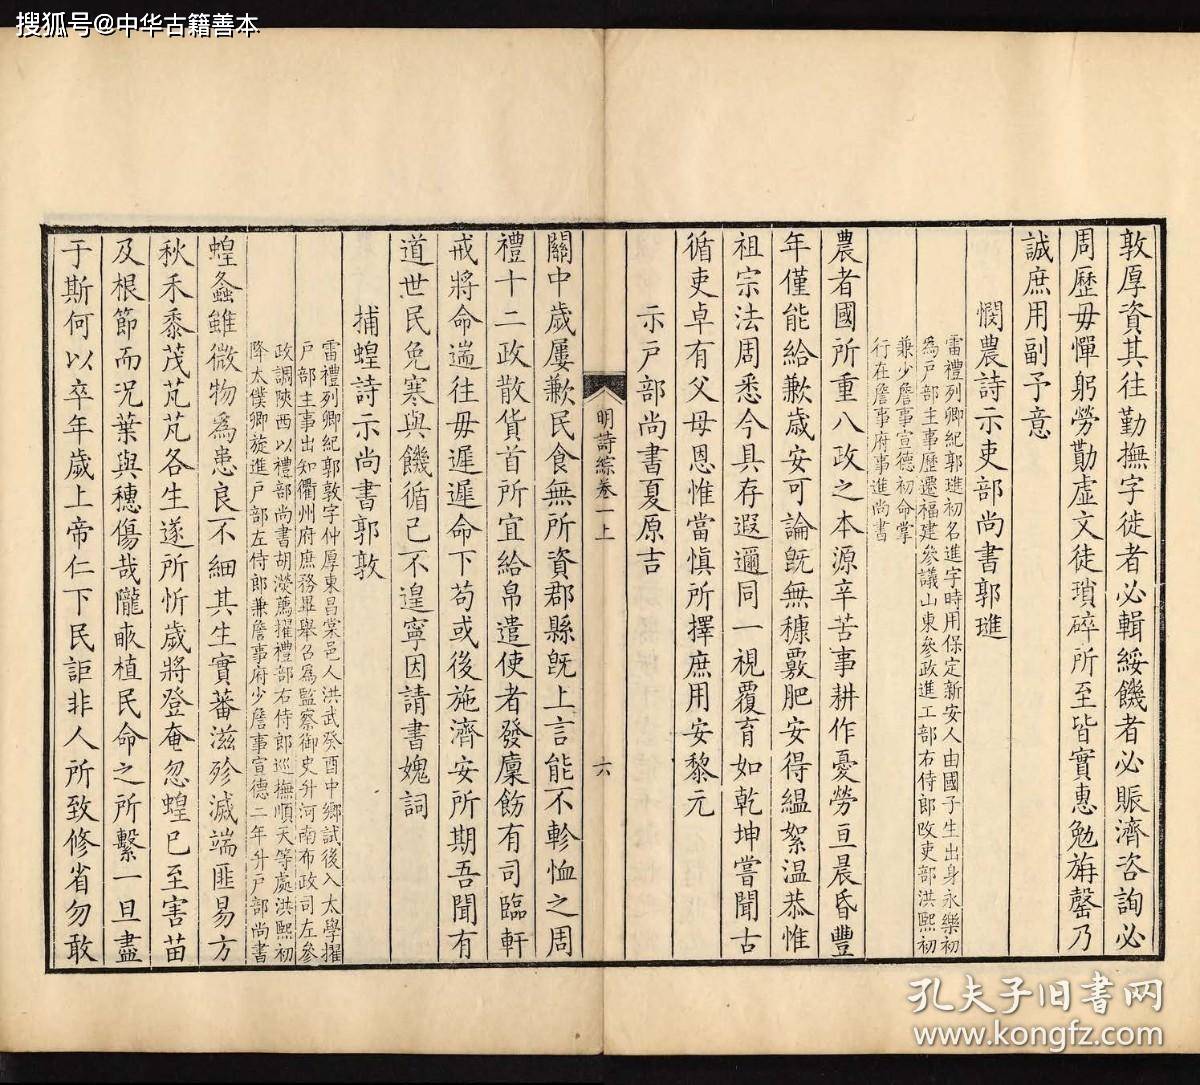 搜狐号@中华古籍善本
敦厚資其往勤撫字徙者必輯綏饑者必賑濟咨詢必
周歷毋憚躬勞勩虛文徒瑣碎所至皆實惠勉旃罄乃
誠庶用副予意
憫農詩示吏部尚書郭璡
雷禮列卿紀郭璡初名進字時用保定新安人由國子生出身永樂初
為戶部主事歷遷福建參議山東參政進工部右侍郎改吏部洪熙初
兼少詹事宣德初命掌
行在詹事府事進尚書
農者國所重八政之本源辛苦事耕作憂勞亘晨昏豐
年僅能給歉歲安可論既無糠覈肥安得縕絮溫恭惟
祖宗法周悉今具存遐邇同一視覆育如乾坤嘗聞古
循吏卓有父母恩惟當慎所擇庶用安黎元
示戶部尚書夏原吉
明詩綜卷一上
六
關中歲屢歉民食無所資郡縣既上言能不軫恤之周
禮十二政散貨首所宜給帛遣使者發廩飭有司臨軒
戒將命遄往毋遲遲命下苟或後施濟安所期吾聞有
道世民免寒與饑循己不遑寧因請書媿詞
捕蝗詩示尚書郭敦
雷禮列卿紀郭敦字仲厚東昌棠邑人洪武癸酉中鄉試後入太學擢
戶部主事出知衢州府庶務畢舉召為監察御史升河南布政司左參
政調陝西以禮部尚書胡濙薦擢禮部右侍郎巡撫順天等處洪熙初
降太僕卿旋進戶部左侍郎兼詹事府少詹事宣德二年升戶部尚書
蝗螽雖微物為患良不細其生實蕃滋殄滅端匪易方
秋禾黍茂芃芃各生遂所忻歲將登奄忽蝗已至害苗
及根節而況葉與穗傷哉隴畝植民命之所繫一旦盡
于斯何以卒年歲上帝仁下民詎非人所致修省勿敢
孔夫子旧书网
www.kongfz.com